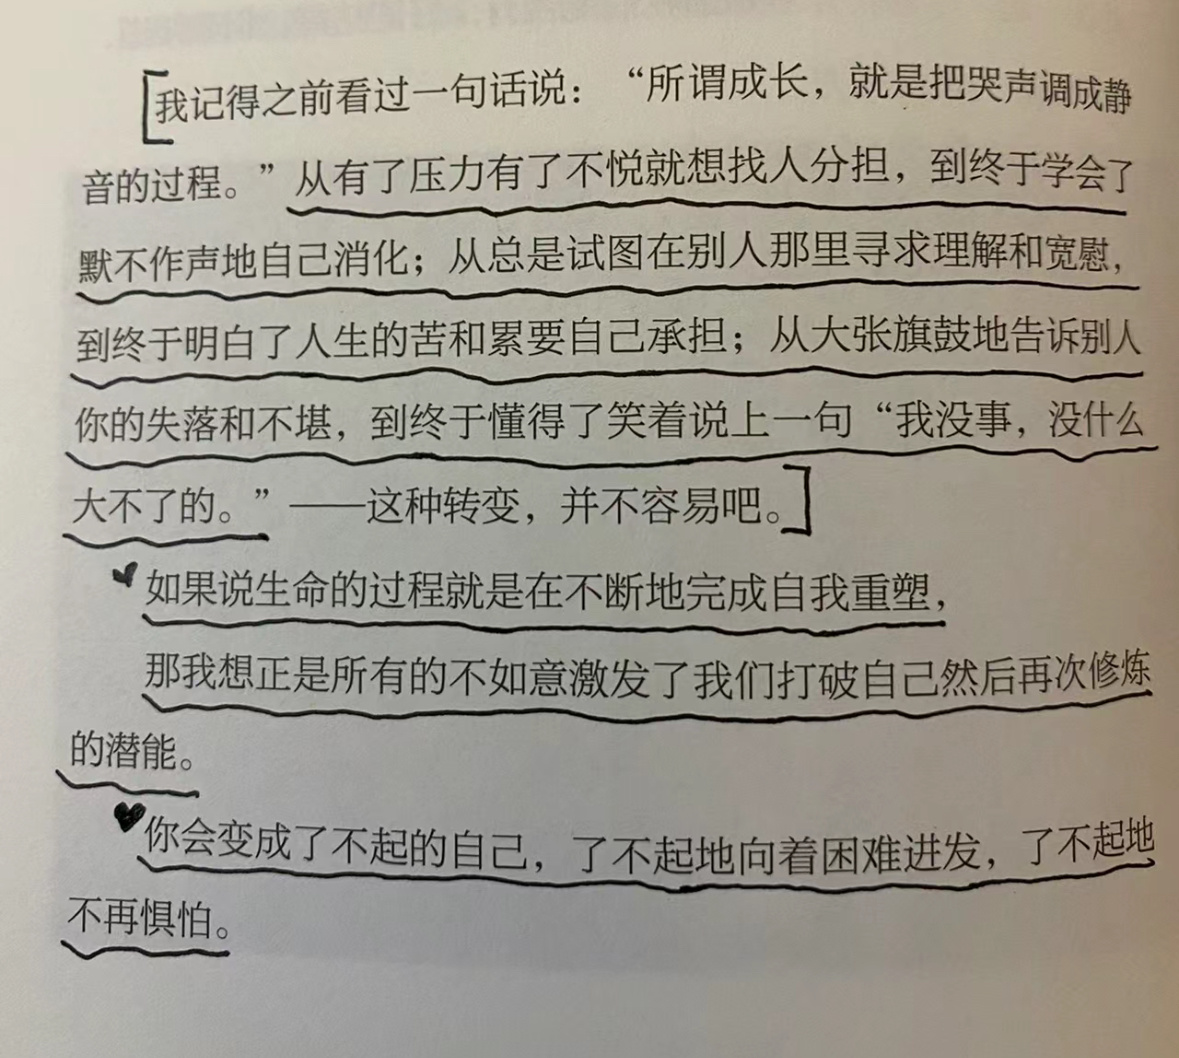 我记得之前看过一句话说：“所谓成长，就是把哭声调成静
音的过程。”从有了压力有了不悦就想找人分担，到终于学会了
默不作声地自己消化；从总是试图在别人那里寻求理解和宽慰，
到终于明白了人生的苦和累要自己承担；从大张旗鼓地告诉别人
你的失落和不堪，到终于懂得了笑着说上一句“我没事，没什么
大不了的。”——这种转变，并不容易吧。
如果说生命的过程就是在不断地完成自我重塑，
那我想正是所有的不如意激发了我们打破自己然后再次修炼
的潜能。
你会变成了不起的自己，了不起地向着困难进发，了不起地
不再惧怕。